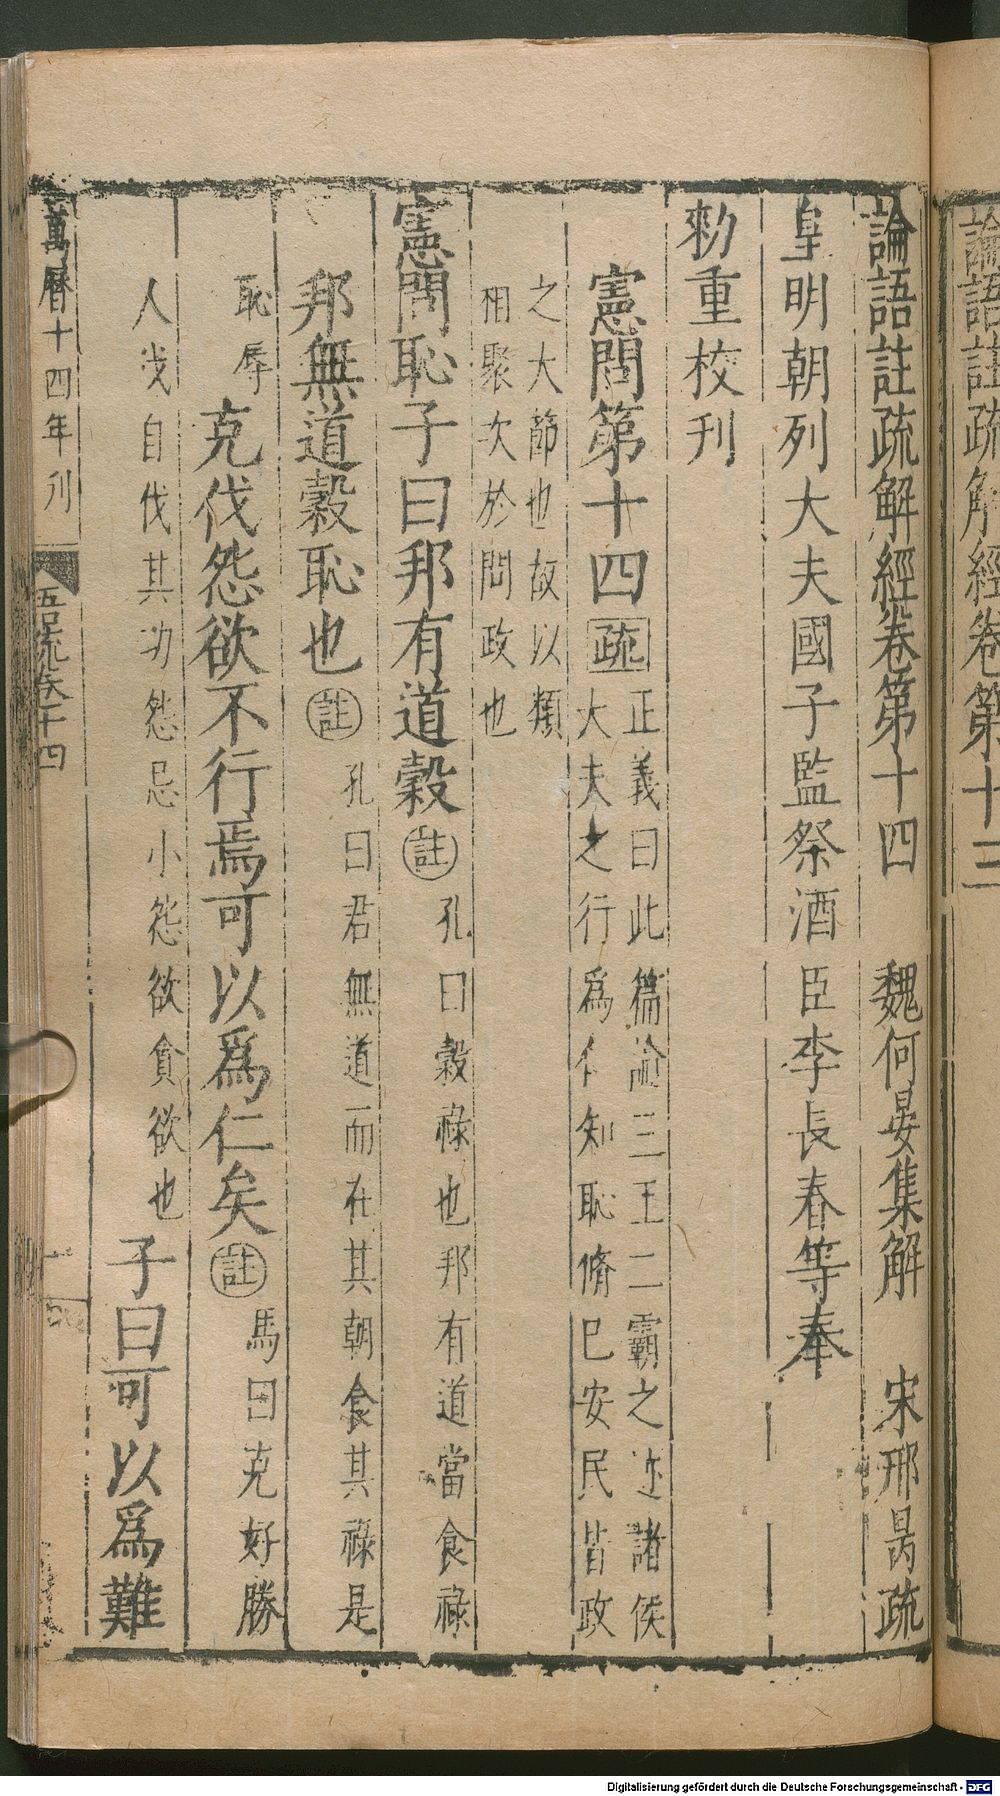 論語註疏解經卷第十三
論語註疏解經卷第十四　魏何晏集解　宋邢昺疏
皇明朝列大夫國子監祭酒臣李長春等奉
勑重校刊
憲問第十四疏正義曰此篇論三王二霸之迹諸侯
大夫之行爲仁知恥脩己安民皆政
之大節也故以類
相聚次於問政也
憲問恥子曰邦有道穀註孔曰穀祿也邦有道當食祿
邦無道穀恥也註孔曰君無道而在其朝食其祿是
恥辱克伐怨欲不行焉可以爲仁矣註馬曰克好勝
人伐自伐其功怨忌小怨欲貪欲也子曰可以爲難
萬曆十四年刋
吾㐬卷十四
一
Digitalisierung gefördert durch die Deutsche Forschungsgemeinschaft - DFG